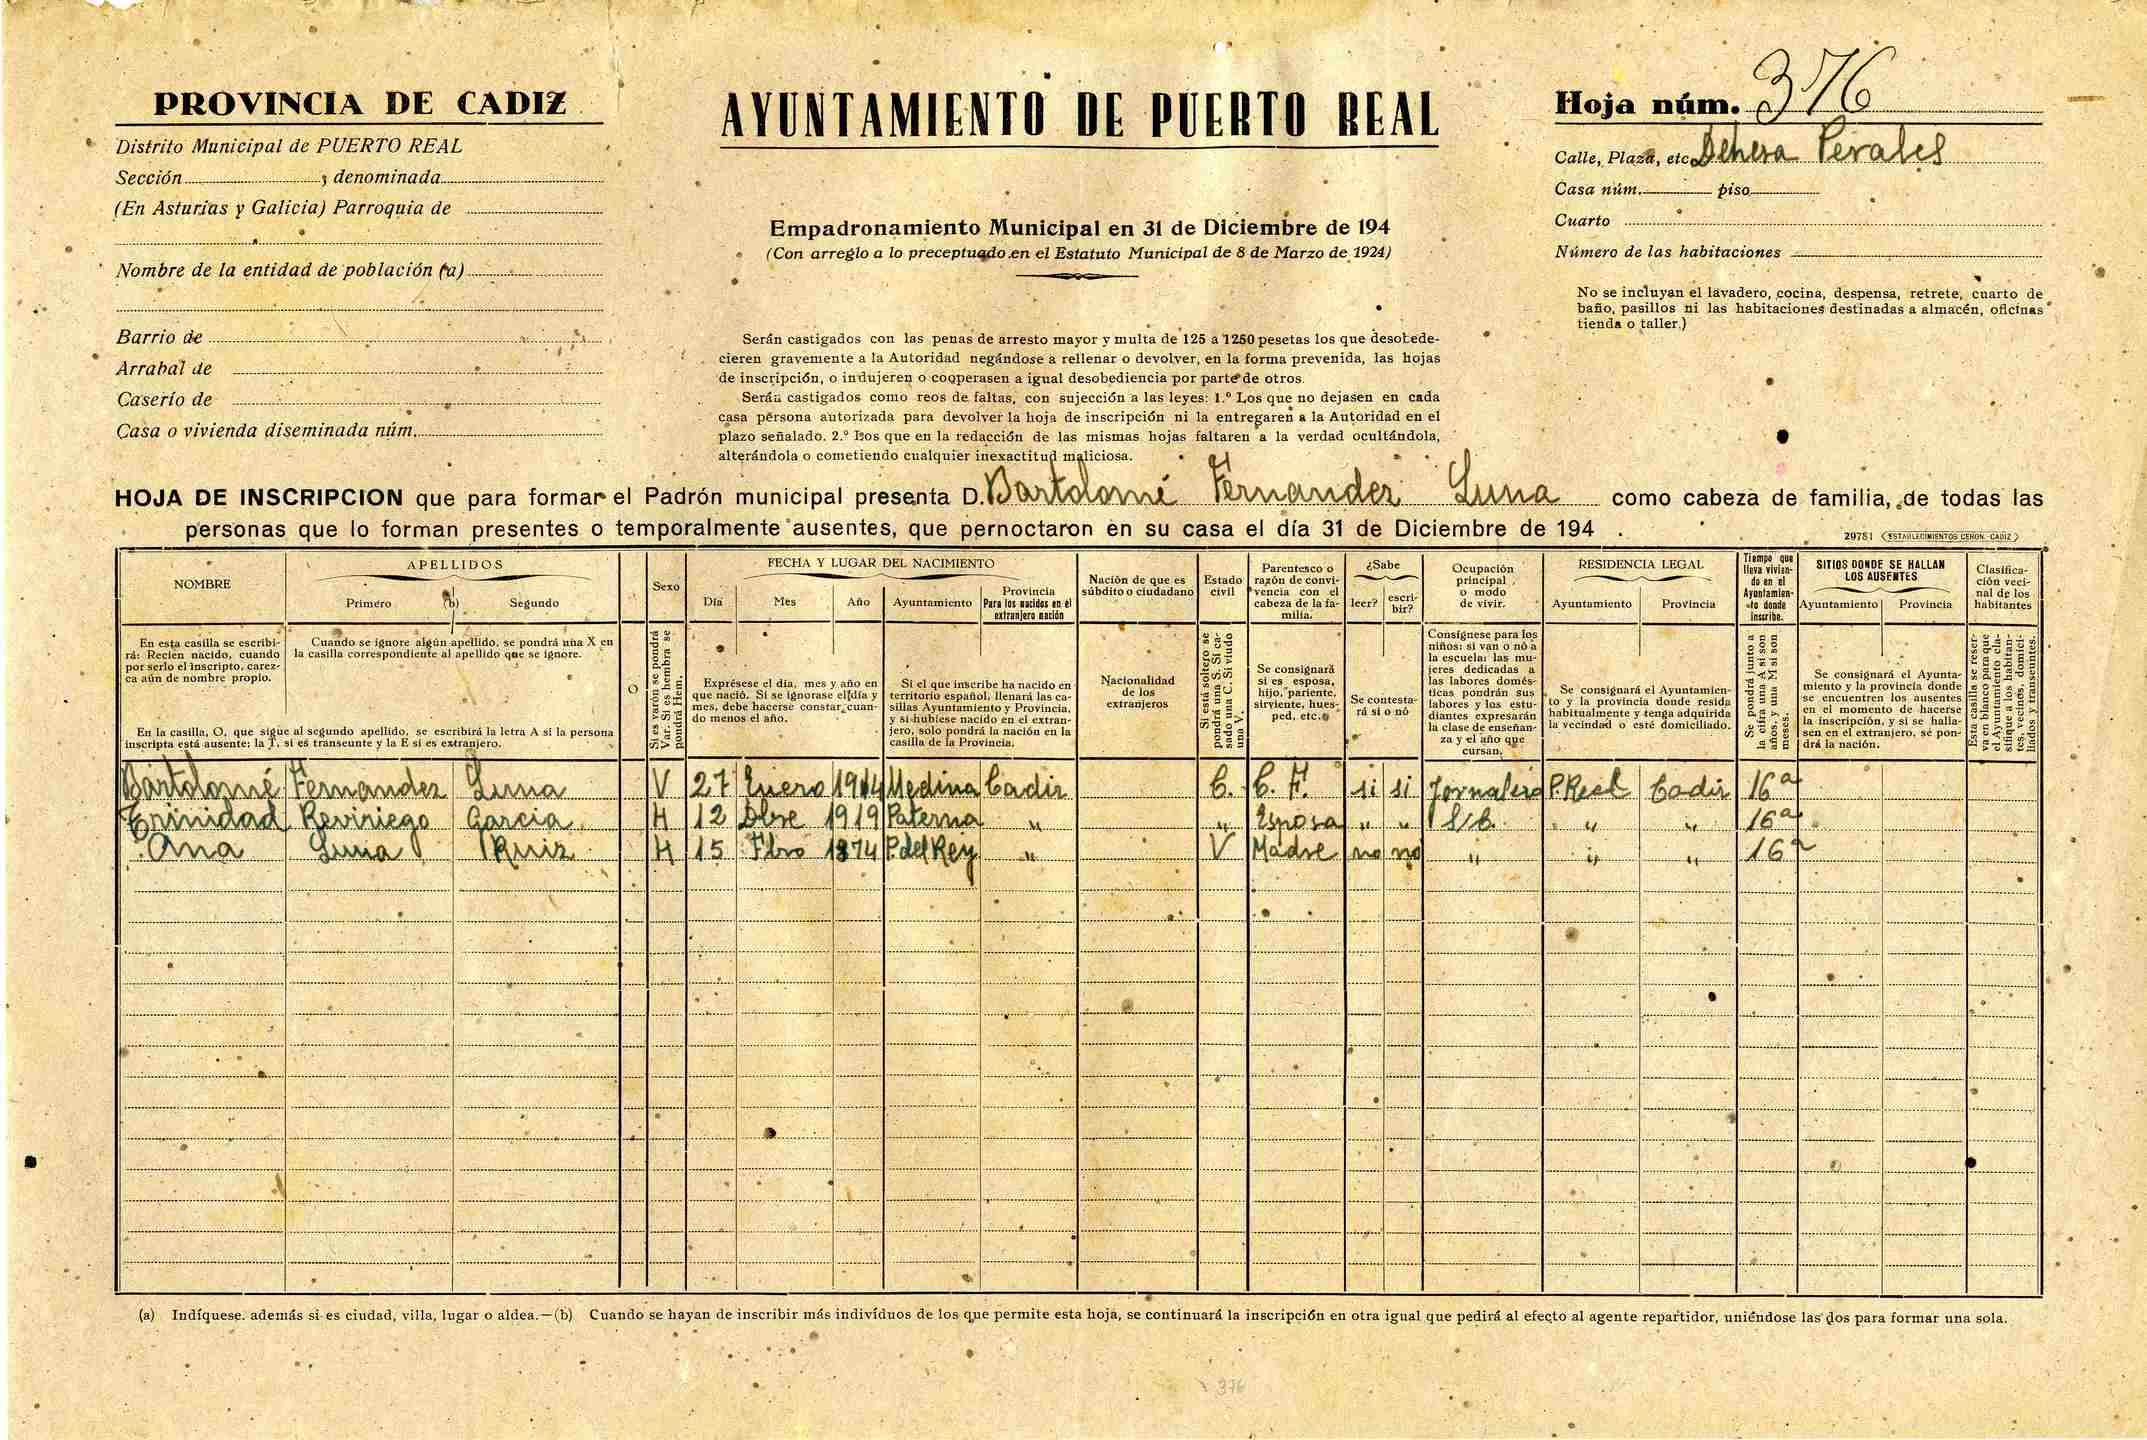 PROVINCIA DE CADIZ
Distrito Municipal de PUERTO REAL
Sección ; denominada
(En Asturias y Galicia) Parroquia de
Nombre de la entidad de población (a)
Barrio de
Arrabal de
Caserío de
Casa o vivienda diseminada núm.
AYUNTAMIENTO DE PUERTO REAL
Empadronamiento Municipal en 31 de Diciembre de 194
(Con arreglo a lo preceptuado en el Estatuto Municipal de 8 de Marzo de 1924)
Serán castigados con las penas de arresto mayor y multa de 125 a 1250 pesetas los que desobede-
cieren gravemente a la Autoridad negándose a rellenar o devolver, en la forma prevenida, las hojas
de inscripción, o indujeren o cooperasen a igual desobediencia por parte de otros.
Serán castigados como reos de faltas, con sujección a las leyes: 1.º Los que no dejasen en cada
casa persona autorizada para devolver la hoja de inscripción ni la entregaren a la Autoridad en el
plazo señalado. 2.º Los que en la redacción de las mismas hojas faltaren a la verdad ocultándola,
alterándola o cometiendo cualquier inexactitud maliciosa.
Hoja núm. 376
Calle, Plaza, etc Dehesa Perales
Casa núm. piso
Cuarto
Número de las habitaciones
No se incluyan el lavadero, cocina, despensa, retrete, cuarto de
baño, pasillos ni las habitaciones destinadas a almacén, oficinas
tienda o taller.)
HOJA DE INSCRIPCION que para formar el Padrón municipal presenta D. Bartolomé Fernandez Luna como cabeza de familia, de todas las
personas que lo forman presentes o temporalmente ausentes, que pernoctaron en su casa el día 31 de Diciembre de 194 .
29781 (ESTABLECIMIENTOS CERON.-CADIZ)
NOMBRE
APELLIDOS
Primero (b) Segundo
Sexo
FECHA Y LUGAR DEL NACIMIENTO
Día Mes Año Ayuntamiento
Provincia
Para los nacidos en el
extranjero nación
Nación de que es
súbdito o ciudadano
Estado
civil
Parentesco o
razón de convi-
vencia con el
cabeza de la fa-
milia.
¿Sabe
leer? escri-
bir?
Ocupación
principal
o modo
de vivir.
RESIDENCIA LEGAL
Ayuntamiento Provincia
Tiempo que
lleva vivien-
do en el
Ayuntamien-
to donde
inscribe.
SITIOS DONDE SE HALLAN
LOS AUSENTES
Ayuntamiento Provincia
Clasifica-
ción veci-
nal de los
habitantes
En esta casilla se escribi-
rá: Recien nacido, cuando
por serlo el inscripto, carez-
ca aún de nombre propio.
Cuando se ignore algún apellido, se pondrá una X en
la casilla correspondiente al apellido que se ignore.
En la casilla, O, que sigue al segundo apellido, se escribirá la letra A si la persona
inscripta está ausente; la T, si es transeunte y la E si es extranjero.
O
Si es varón se pondrá
Var. Si es hembra se
pondrá Hem.
Exprésese el día, mes y año en
que nació. Si se ignorase el día y
mes, debe hacerse constar cuan-
do menos el año.
Si el que inscribe ha nacido en
territorio español, llenará las ca-
sillas Ayuntamiento y Provincia,
y si hubiese nacido en el extran-
jero, solo pondrá la nación en la
casilla de la Provincia.
Nacionalidad
de los
extranjeros
Si está soltero se
pondrá una S. Si ca-
sado una C. Si viudo
una V.
Se consignará
si es esposa,
hijo, pariente,
sirviente, hues-
ped, etc.
Se contesta-
rá sí o nó
Consígnese para los
niños: si van o nó a
la escuela; las mu-
jeres dedicadas a
las labores domés-
ticas pondrán sus
labores y los estu-
diantes expresarán
la clase de enseñan-
za y el año que
cursan.
Se consignará el Ayuntamien-
to y la provincia donde resida
habitualmente y tenga adquirida
la vecindad o esté domiciliado.
Se pondrá junto a
la cifra una A si son
años, y una M si son
meses.
Se consignará el Ayunta-
miento y la provincia donde
se encuentren los ausentes
en el momento de hacerse
la inscripción, y si se halla-
sen en el extranjero, se pon-
drá la nación.
Esta casilla se reser-
va en blanco para que
el Ayuntamiento cla-
sifique a los habitan-
tes, vecinos, domici-
liados y transeuntes.
Bartolomé Fernandez Luna V 27 Enero 1914 Medina Cadiz C. C. F. si si Jornalero P. Real Cadiz 16 a
Trinidad Reviriego Garcia H 12 Dbre 1919 Paterna " " Esposa " " S/C. " " 16 a
Ana Luna Ruiz H 15 Fbro 1874 P. del Rey " V Madre no no " " " 16 a
(a) Indíquese. además si es ciudad, villa, lugar o aldea.—(b) Cuando se hayan de inscribir más indivíduos de los que permite esta hoja, se continuará la inscripción en otra igual que pedirá al efecto al agente repartidor, uniéndose las dos para formar una sola.
376